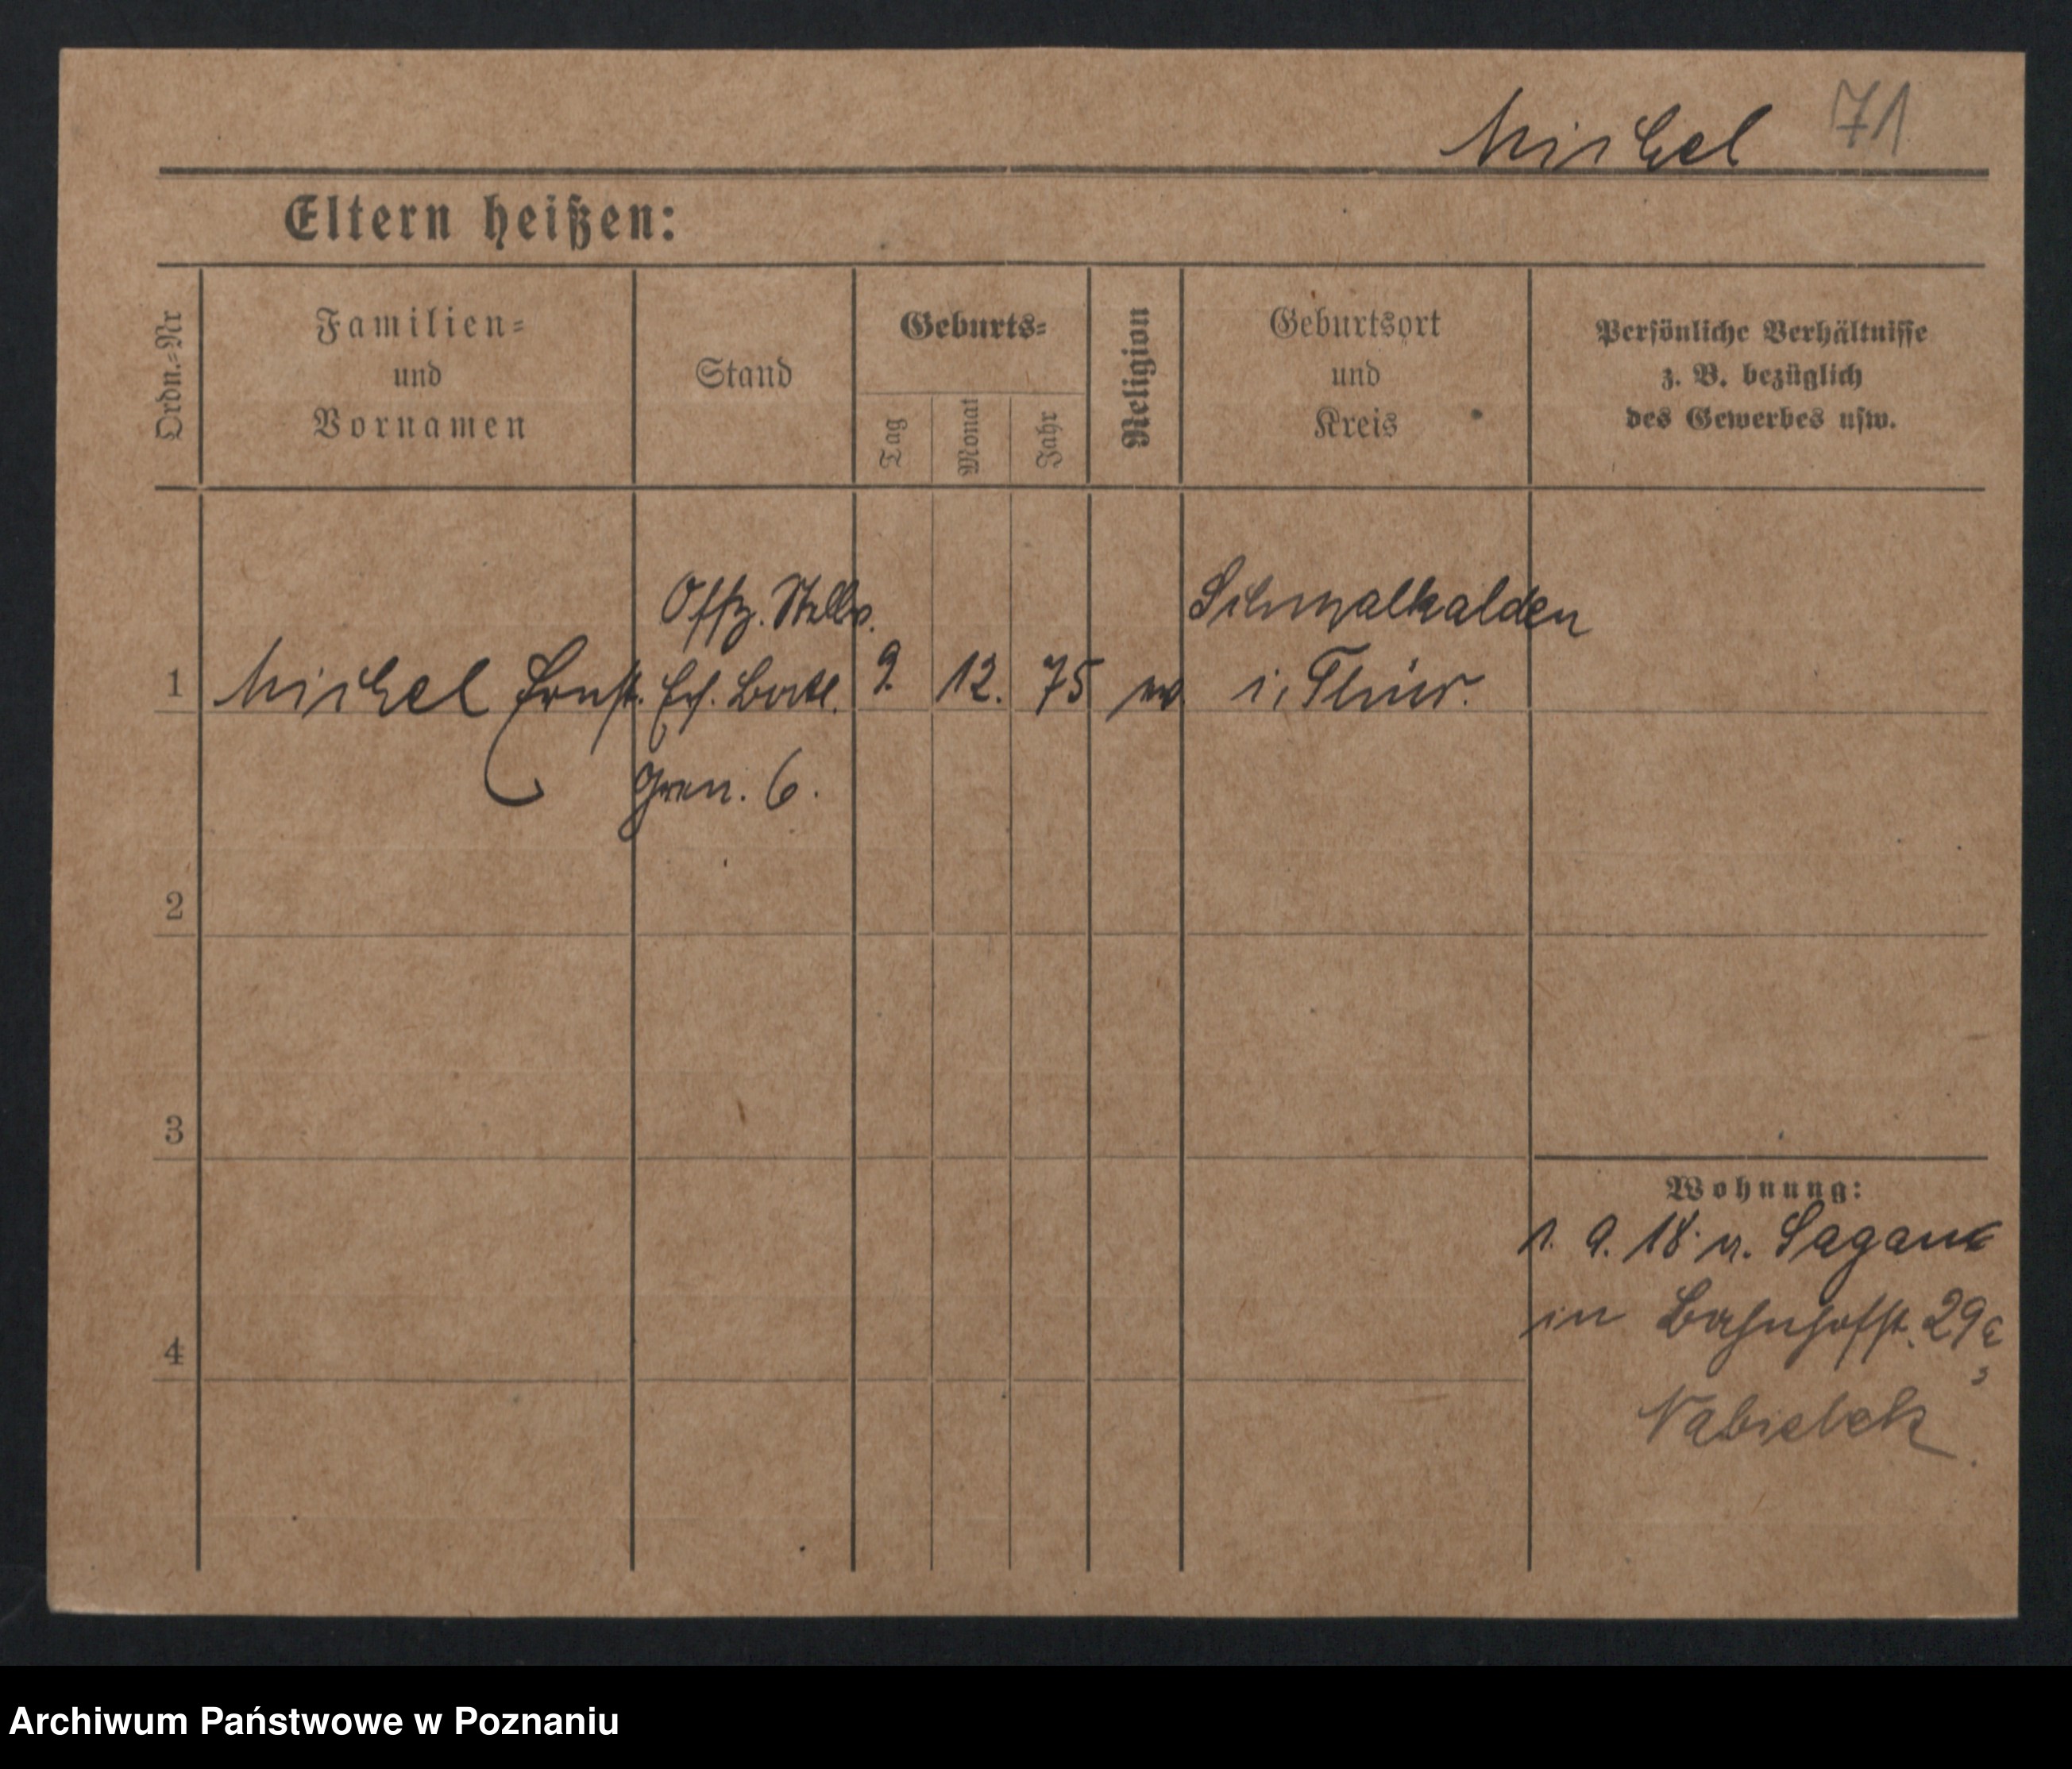 Michel 71
Eltern heißen:
Ordn.-Nr
Familien-
und
Vornamen
Stand
Geburts-
Tag
Monat
Jahr
Religion
Geburtsort
und
Kreis
Persönliche Verhältnisse
z. B. bezüglich
des Gewerbes usw.
Offz. Stellv.
Schmalkalden
1 Michel Ernst. Ers. Batl. 9. 12. 75 i. Thür.
Gren. 6.
2
3
Wohnung:
1. 9. 18 v. Sagan
in Bahnhofst. 29
4
Nabielek
Archiwum Państwowe w Poznaniu